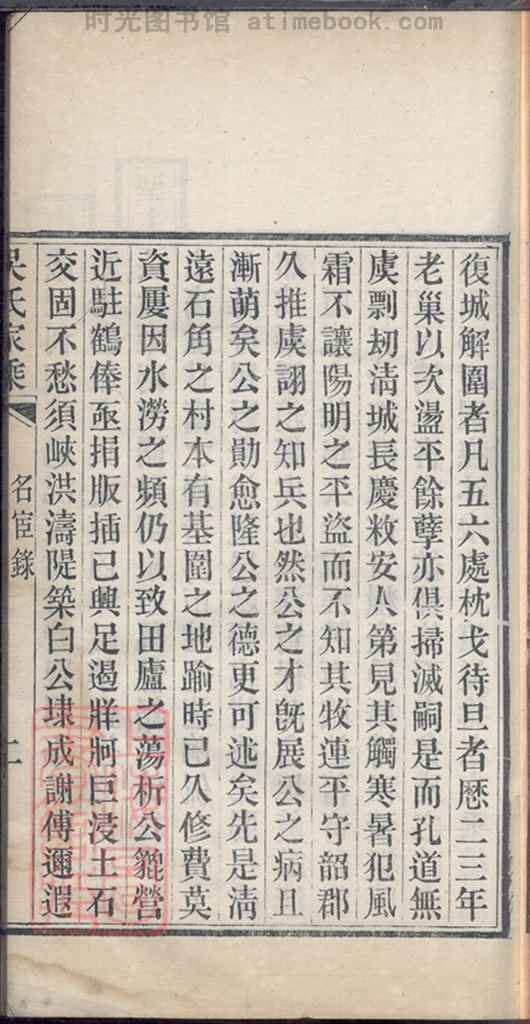 时光图书馆 atimebook.com
復城解圍者凡五六處枕戈待旦者歷二三年
老巢以次盪平餘孽亦俱掃滅嗣是而孔道無
虞剽刼清城長慶敉安人第見其觸寒暑犯風
霜不讓陽明之平盜而不知其牧連平守韶郡
久推虞詡之知兵也然公之才旣展公之病且
漸萌矣公之勛愈隆公之德更可述矣先是清
遠石角之村本有基圍之地踰時已久修費莫
資屢因水澇之頻仍以致田廬之蕩析公貔營
近駐鶴俸亟捐版插已興足遏牂牁巨浸土石
交固不愁須峽洪濤隄築白公埭成謝傅邇遐
吳氏家乘
名宦錄
二